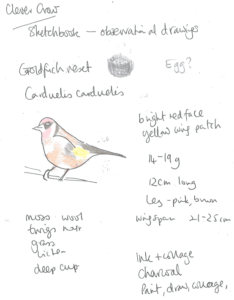 Clever Crow
Sketchbook — observational drawings
Goldfinch nest
Egg?
Carduelis carduelis
bright red face
yellow wing patch
14-19g
12cm long
Leg - pink, brown
wingspan 21-25cm
moss wool
twigs hair
grass
lichen
deep cup
Ink + collage
charcoal
Paint, draw, collage,